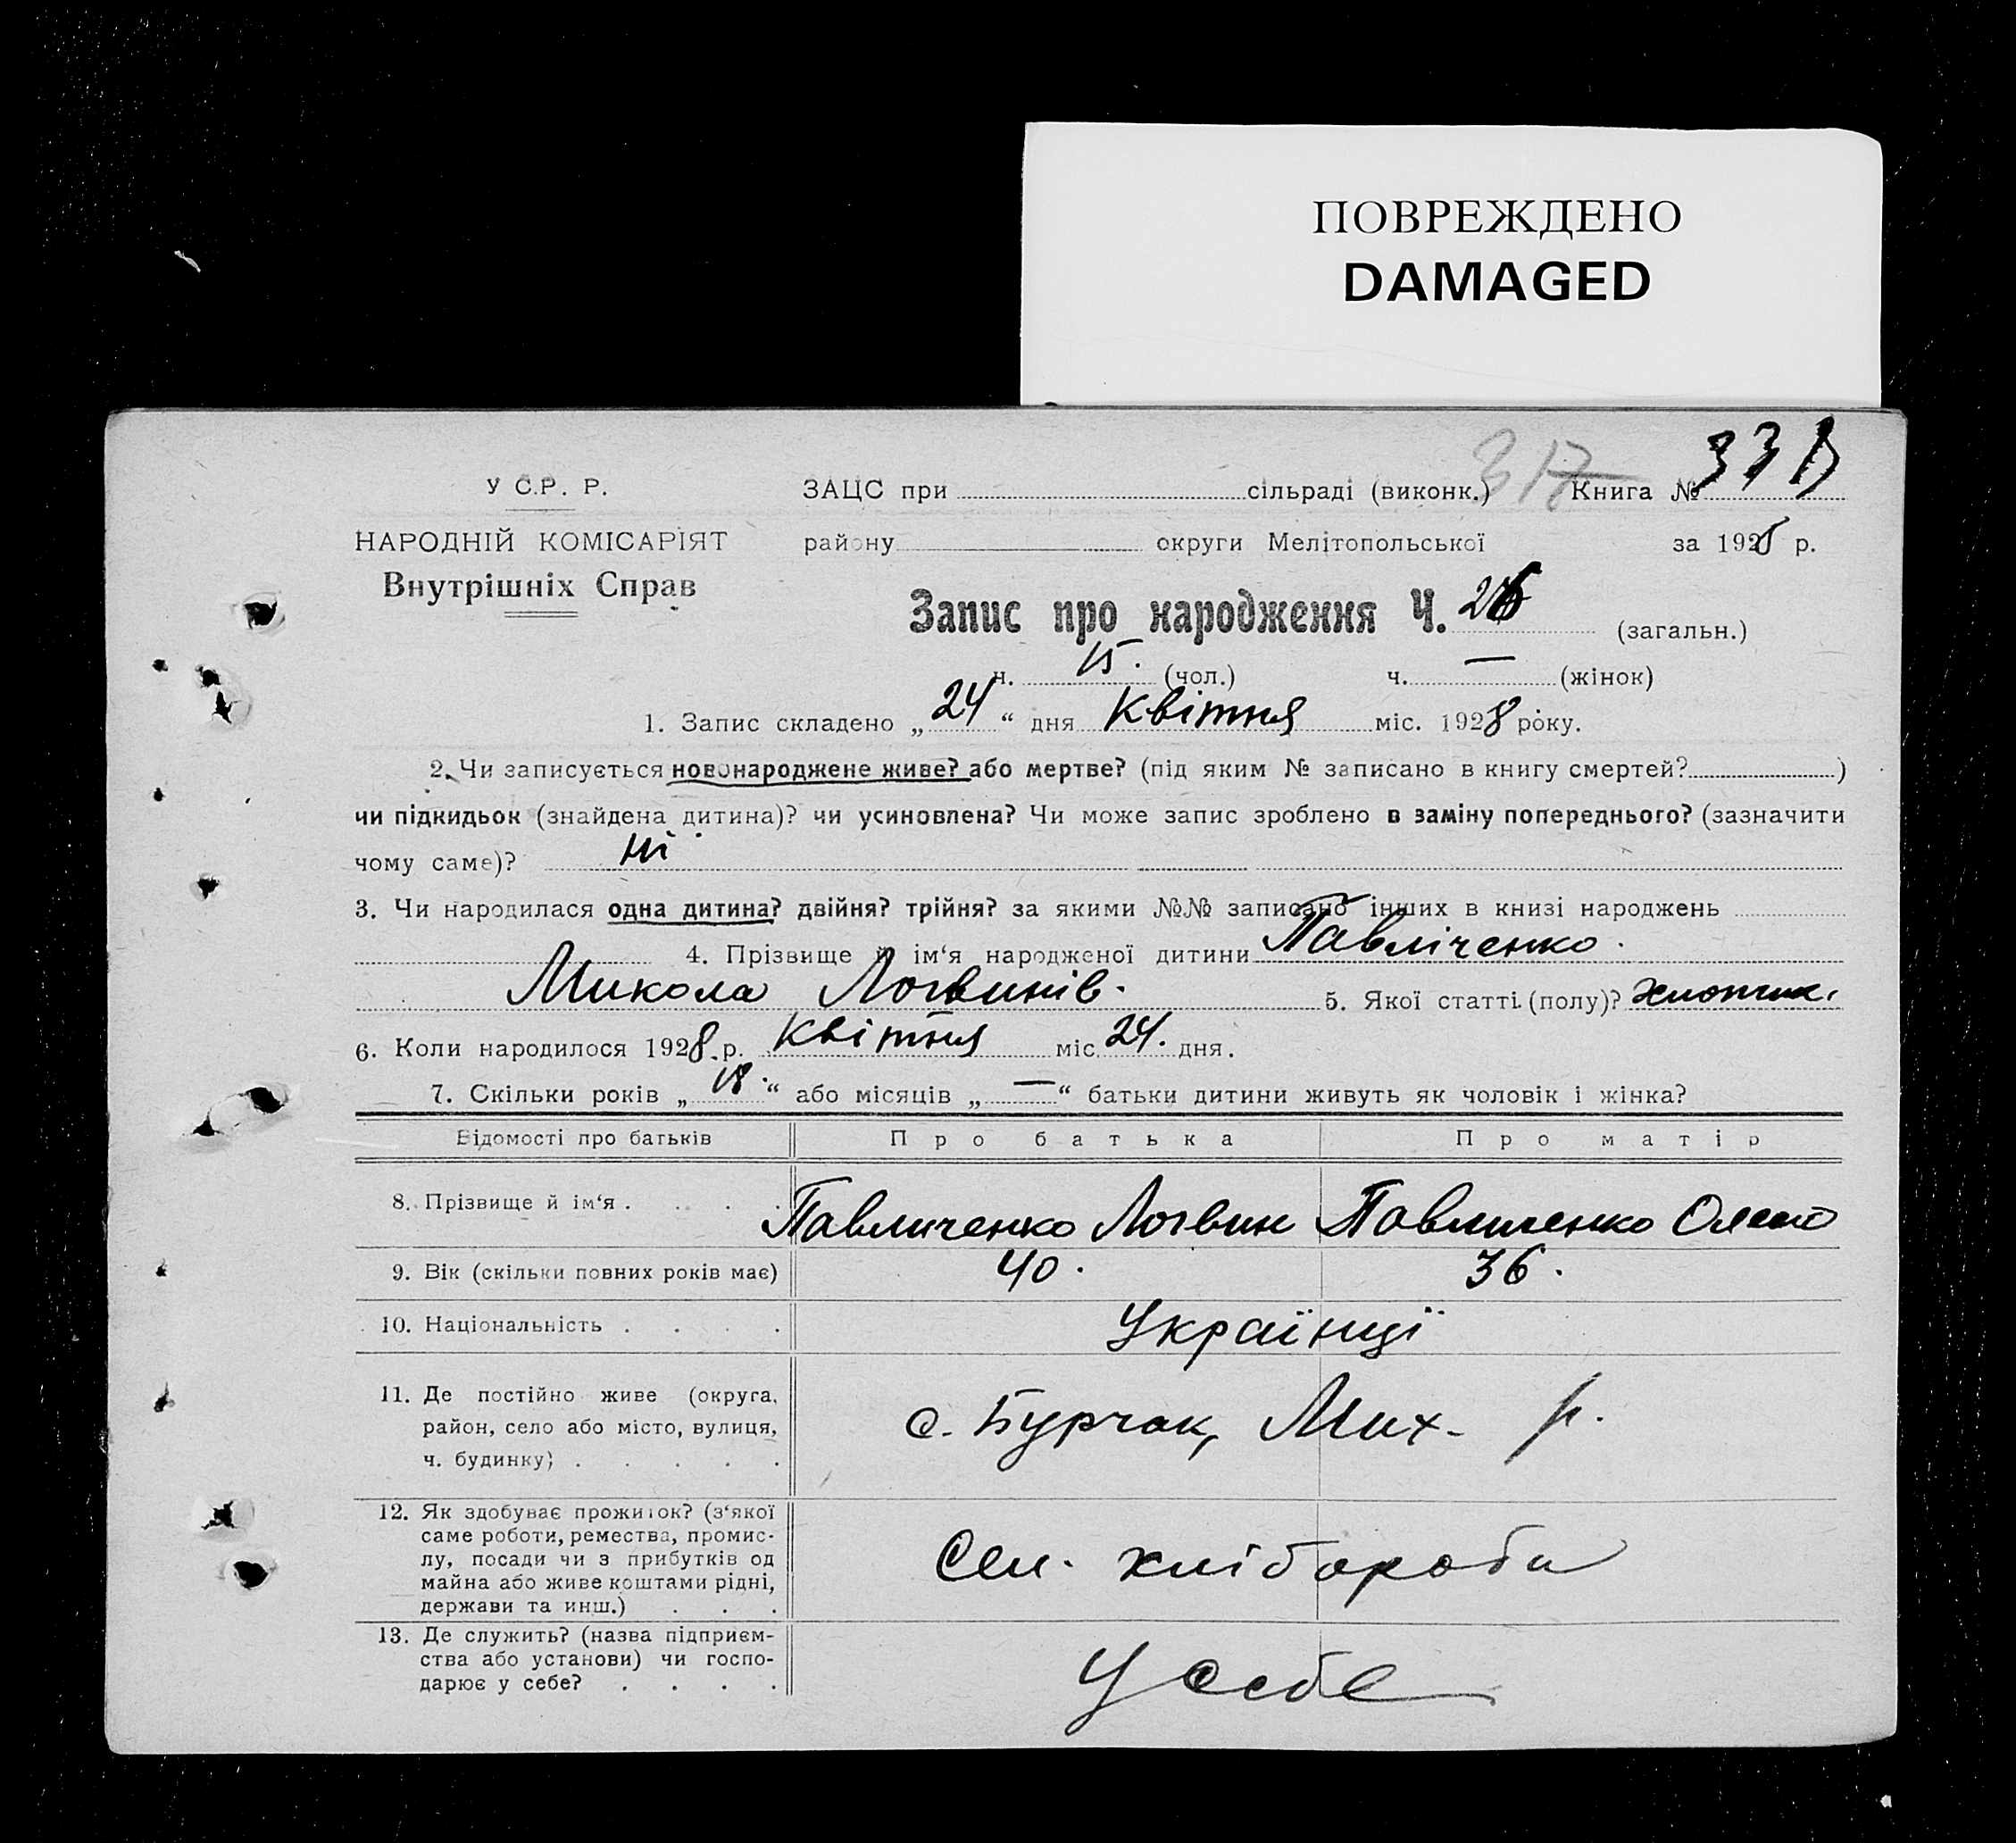 ПОВРЕЖДЕНО
DAMAGED
У С.Р. Р.
ЗАЦС при сільраді (виконк.) 317 Книга № 33
НАРОДНІЙ КОМІСАРІЯТ
району округи Мелітопольської за 1928 р.
Внутрішніх Справ
Запис про народження Ч. 26 (загальн.)
ч. 15. (чол.) ч. — (жінок)
1. Запис складено „ 24 “ дня Квітня міс. 1928 року.
2. Чи записується новонароджене живе? або мертве? (під яким № записано в книгу смертей? )
чи підкидьок (знайдена дитина)? чи усиновлена? Чи може запис зроблено в заміну попереднього? (зазначити
чому саме)? ні
3. Чи народилася одна дитина? двійня? трійня? за якими №№ записано інших в книзі народжень
4. Прізвище й ім‘я народженої дитини Павліченко.
Микола Логвинів. 5. Якої статті (полу)? хлопчик.
6. Коли народилося 1928 р. Квітня міс. 24. дня.
7. Скільки років „ 18. “ або місяців „ — “ батьки дитини живуть як чоловік і жінка?
Відомості про батьків Про батька Про матір
8. Прізвище й ім‘я . . . . Павличенко Логвин Павличенко
9. Вік (скільки повних років має) 40. 36.
10. Національність . . . . Українці
11. Де постійно живе (округа,
район, село або місто, вулиця, с. Бурчак, Мих. р.
ч. будинку) . . . . .
12. Як здобуває прожиток? (з‘якої
саме роботи, ремества, промис-
лу, посади чи з прибутків од Сел. хлібороби
майна або живе коштами рідні,
держави та инш.) . . .
13. Де служить? (назва підприєм-
ства або установи) чи госпо- У себе
дарює у себе? . . . .